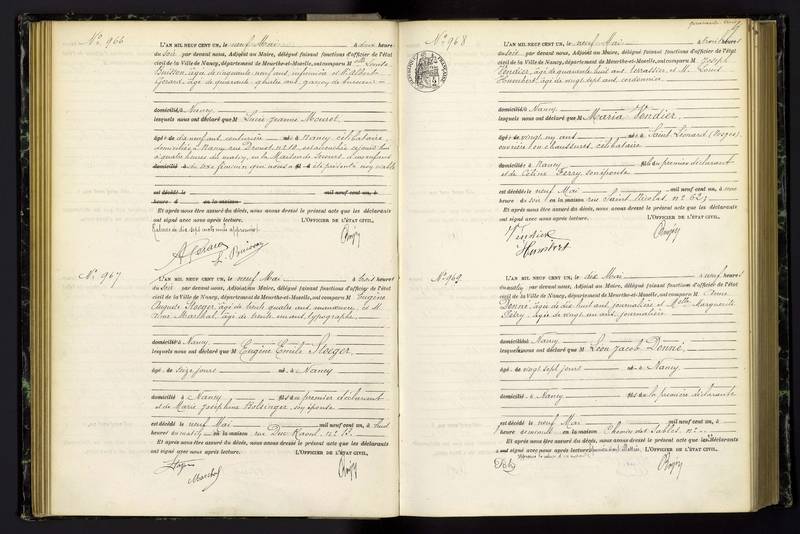 No 966
L'AN MIL NEUF CENT UN, le neuf Mai à deux heures
du soir par devant nous, Adjoint au Maire, délégué faisant fonctions d'officier de l'état
civil de la Ville de Nancy, département de Meurthe-et-Moselle, ont comparu Melle Louise
Buisson, âgée de cinquante neuf ans, infirmière et M. Albert
Gérard, âgé de quarante quatre ans, garçon de bureau
domicilié à Nancy
lesquels nous ont déclaré que M Lucie Jeanne Mourot
âgé de dix neuf ans, couturière né à Nancy, célibataire,
domiciliée à Nancy, rue Drouot, no 10, est accouchée ce jourd'hui
à quatre heures du matin, en la Maison de Secours, d'un enfant
domicilié à du sexe féminin qui nous a été présenté non viable
est décédé le mil neuf cent un, à
heure d en la maison
Et après nous être assuré du décès, nous avons dressé le présent acte que les déclarants
ont signé avec nous après lecture. L'OFFICIER DE L'ÉTAT CIVIL,
Rature de dix sept mots nuls approuvée
A. Gérard
L. Buisson
No 967
L'AN MIL NEUF CENT UN, le neuf Mai à trois heures
du soir par devant nous, Adjoint au Maire, délégué faisant fonctions d'officier de l'état
civil de la Ville de Nancy, département de Meurthe-et-Moselle, ont comparu M Eugène
Auguste Steeger, âgé de trente quatre ans, manœuvre, et M.
Marchal, âgé de trente un ans, typographe
domicilié à Nancy
lesquels nous ont déclaré que M Eugène Emile Steeger,
âgé de seize jours né à Nancy
domicilié à Nancy fils du premier déclarant
et de Marie Joséphine Bolsinger, son épouse
est décédé le neuf Mai mil neuf cent un, à huit
heures du matin en la maison rue Duc Raoul, no 13
Et après nous être assuré du décès, nous avons dressé le présent acte que les déclarants
ont signé avec nous après lecture. L'OFFICIER DE L'ÉTAT CIVIL,
Marchal
No 968
L'AN MIL NEUF CENT UN, le neuf Mai à trois heures
du soir par devant nous, Adjoint au Maire, délégué faisant fonctions d'officier de l'état
civil de la Ville de Nancy, département de Meurthe-et-Moselle, ont comparu M Joseph
Vendier, âgé de quarante huit ans, terrassier et M. Louis
Humbert, âgé de vingt sept ans, cordonnier
domicilié à Nancy
lesquels nous ont déclaré que M Maria Vendier,
âgé de vingt un ans né à Saint Léonard (Vosges)
ouvrière en chaussures, célibataire
domicilié à Nancy fille du premier déclarant
et de Céline Ferry, son épouse
est décédé le neuf Mai mil neuf cent un, à onze
heure du soir en la maison rue Saint Nicolas no 62
Et après nous être assuré du décès, nous avons dressé le présent acte que les déclarants
ont signé avec nous après lecture. L'OFFICIER DE L'ÉTAT CIVIL,
Humbert
No 969
L'AN MIL NEUF CENT UN, le dix Mai à neuf heures
du matin par devant nous, Adjoint au Maire, délégué faisant fonctions d'officier de l'état
civil de la Ville de Nancy, département de Meurthe-et-Moselle, ont comparu M Anne
Donné, âgée de huit ans, journalière et Melle Marguerite
Pétry, âgée de vingt un ans, journalière
domicilié à Nancy
lesquels nous ont déclaré que M Léon Jacob Donné,
âgé de vingt sept jours né à Nancy
domicilié à Nancy fils de la première déclarante
est décédé le neuf Mai mil neuf cent un, à
heure de en la maison Chemin des Sables, no
Et après nous être assuré du décès, nous avons dressé le présent acte que les déclarants
ont signé avec nous après lecture L'OFFICIER DE L'ÉTAT CIVIL,